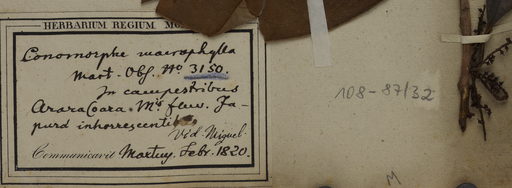 HERBARIUM REGIUM MO
Conomorphe macrophylla
Mart. Obs. No 3150.
In campestribus
Arara Coara. Mts fluv. Ja-
purá inhorrescentibus
Vid. Miquel.
Communicavit Martius. Febr. 1820.
108-87/32
M